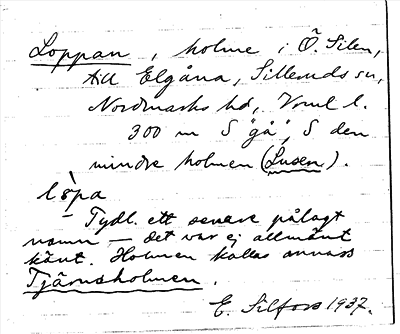 Loppan, holme i Ö. Silen,
till Elgåna, Silleruds sn,
Nordmarks hd, Vrml l.
300 m S "gå", S den
mindre holmen (Lusen).
lòpa
Tydl. ett senare pålagt
namn – det var ej allmänt
känt. Holmen kallas annars
Tjärnsholmen.
E. Silfors 1937.